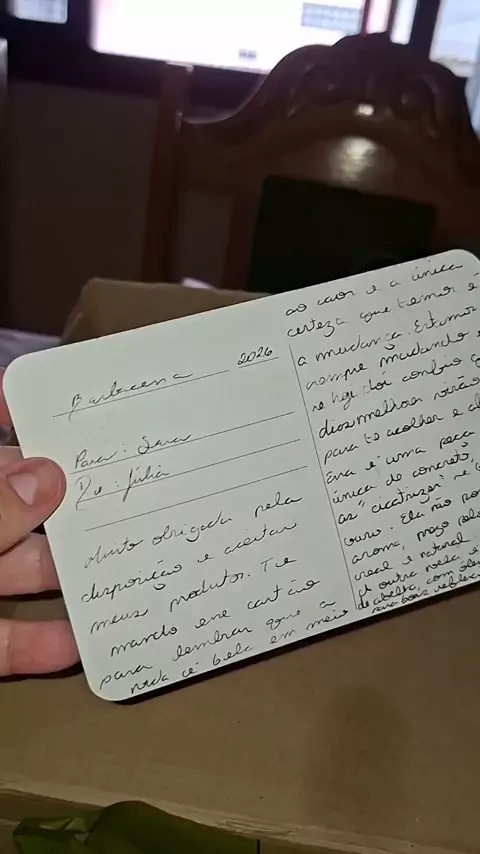 Barbacena 2026
Para: Sara
De: Júlia
Muito obrigada pela
disposição e aceitar
meus produtos. Te
mando esse cartão
para lembrar que a
vida é bela em meio
ao caos e a única
certeza que temos é
a mudança. Estamos
sempre mudando e
se hoje dói confio q
dias melhores virão
para te acolher e a
Essa é uma peça
única de concreto,
as "cicatrizes"
ouro. Ela não po
aroma, mas pela
vocal e natural.
outra vela é
de abelha, com óleo